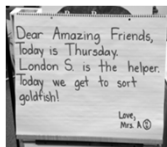 Dear Amazing Friends,
Today is Thursday.
London S. is the helper.
Today we get to sort
goldfish!
Love,
Mrs. A